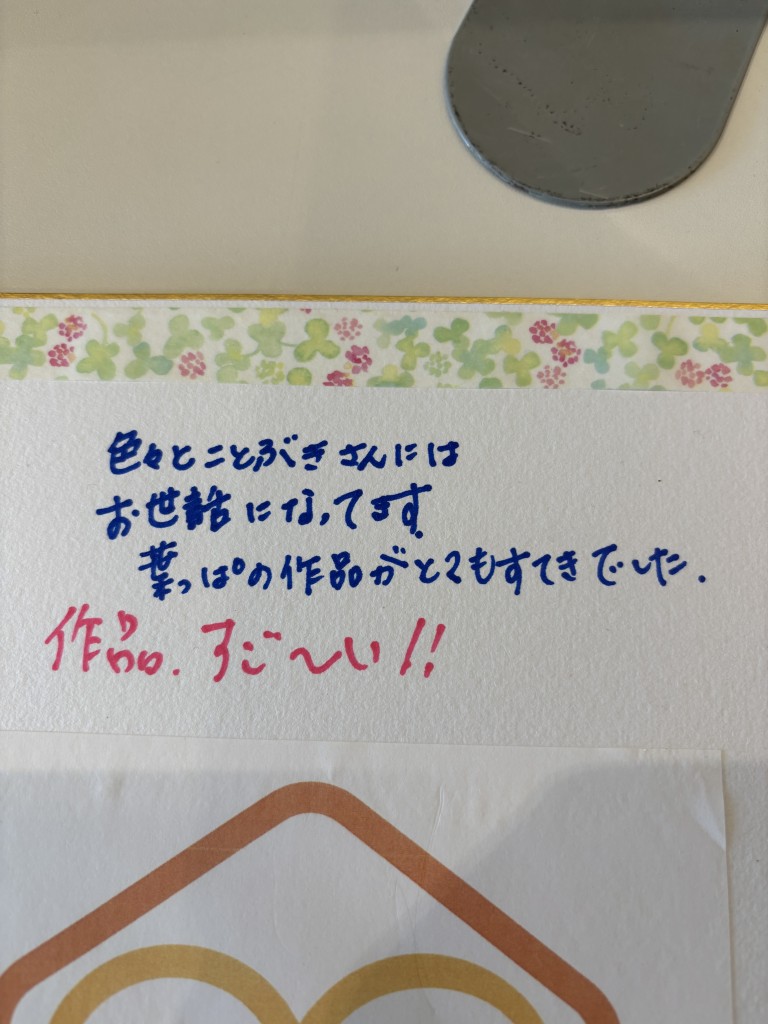 色々とことぶきさんには
お世話になってます。
葉っぱの作品がとてもすてきでした.
作品.すご〜い!!